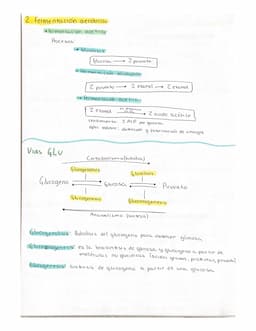 2. Fermentación aeróbica
• Fermentación acética
Proceso:
• Glucólisis
Glucosa → 2 piruvato
• Fermentación alcohólica
2 piruvato → 2 etanal → 2 etanol
• Fermentación acética
2 etanol → 2 ácido acético
rendimiento: 2 ATP por glucosa
Vías GLU
Catabolismo (hidrólisis)
Glucogenólisis Glucólisis
Glucógeno Glucosa Piruvato
Glucogénesis Gluconeogénesis
Anabolismo (síntesis)
Glucogenólisis: hidrólisis del glucógeno para obtener glucosa.
Gluconeogénesis: es la biosíntesis de glucosa y glucógeno a partir de
moléculas no glucídicas (ácidos grasos, proteínas, piruvato)
Glucogénesis: síntesis de glucógeno a partir de una glucosa.